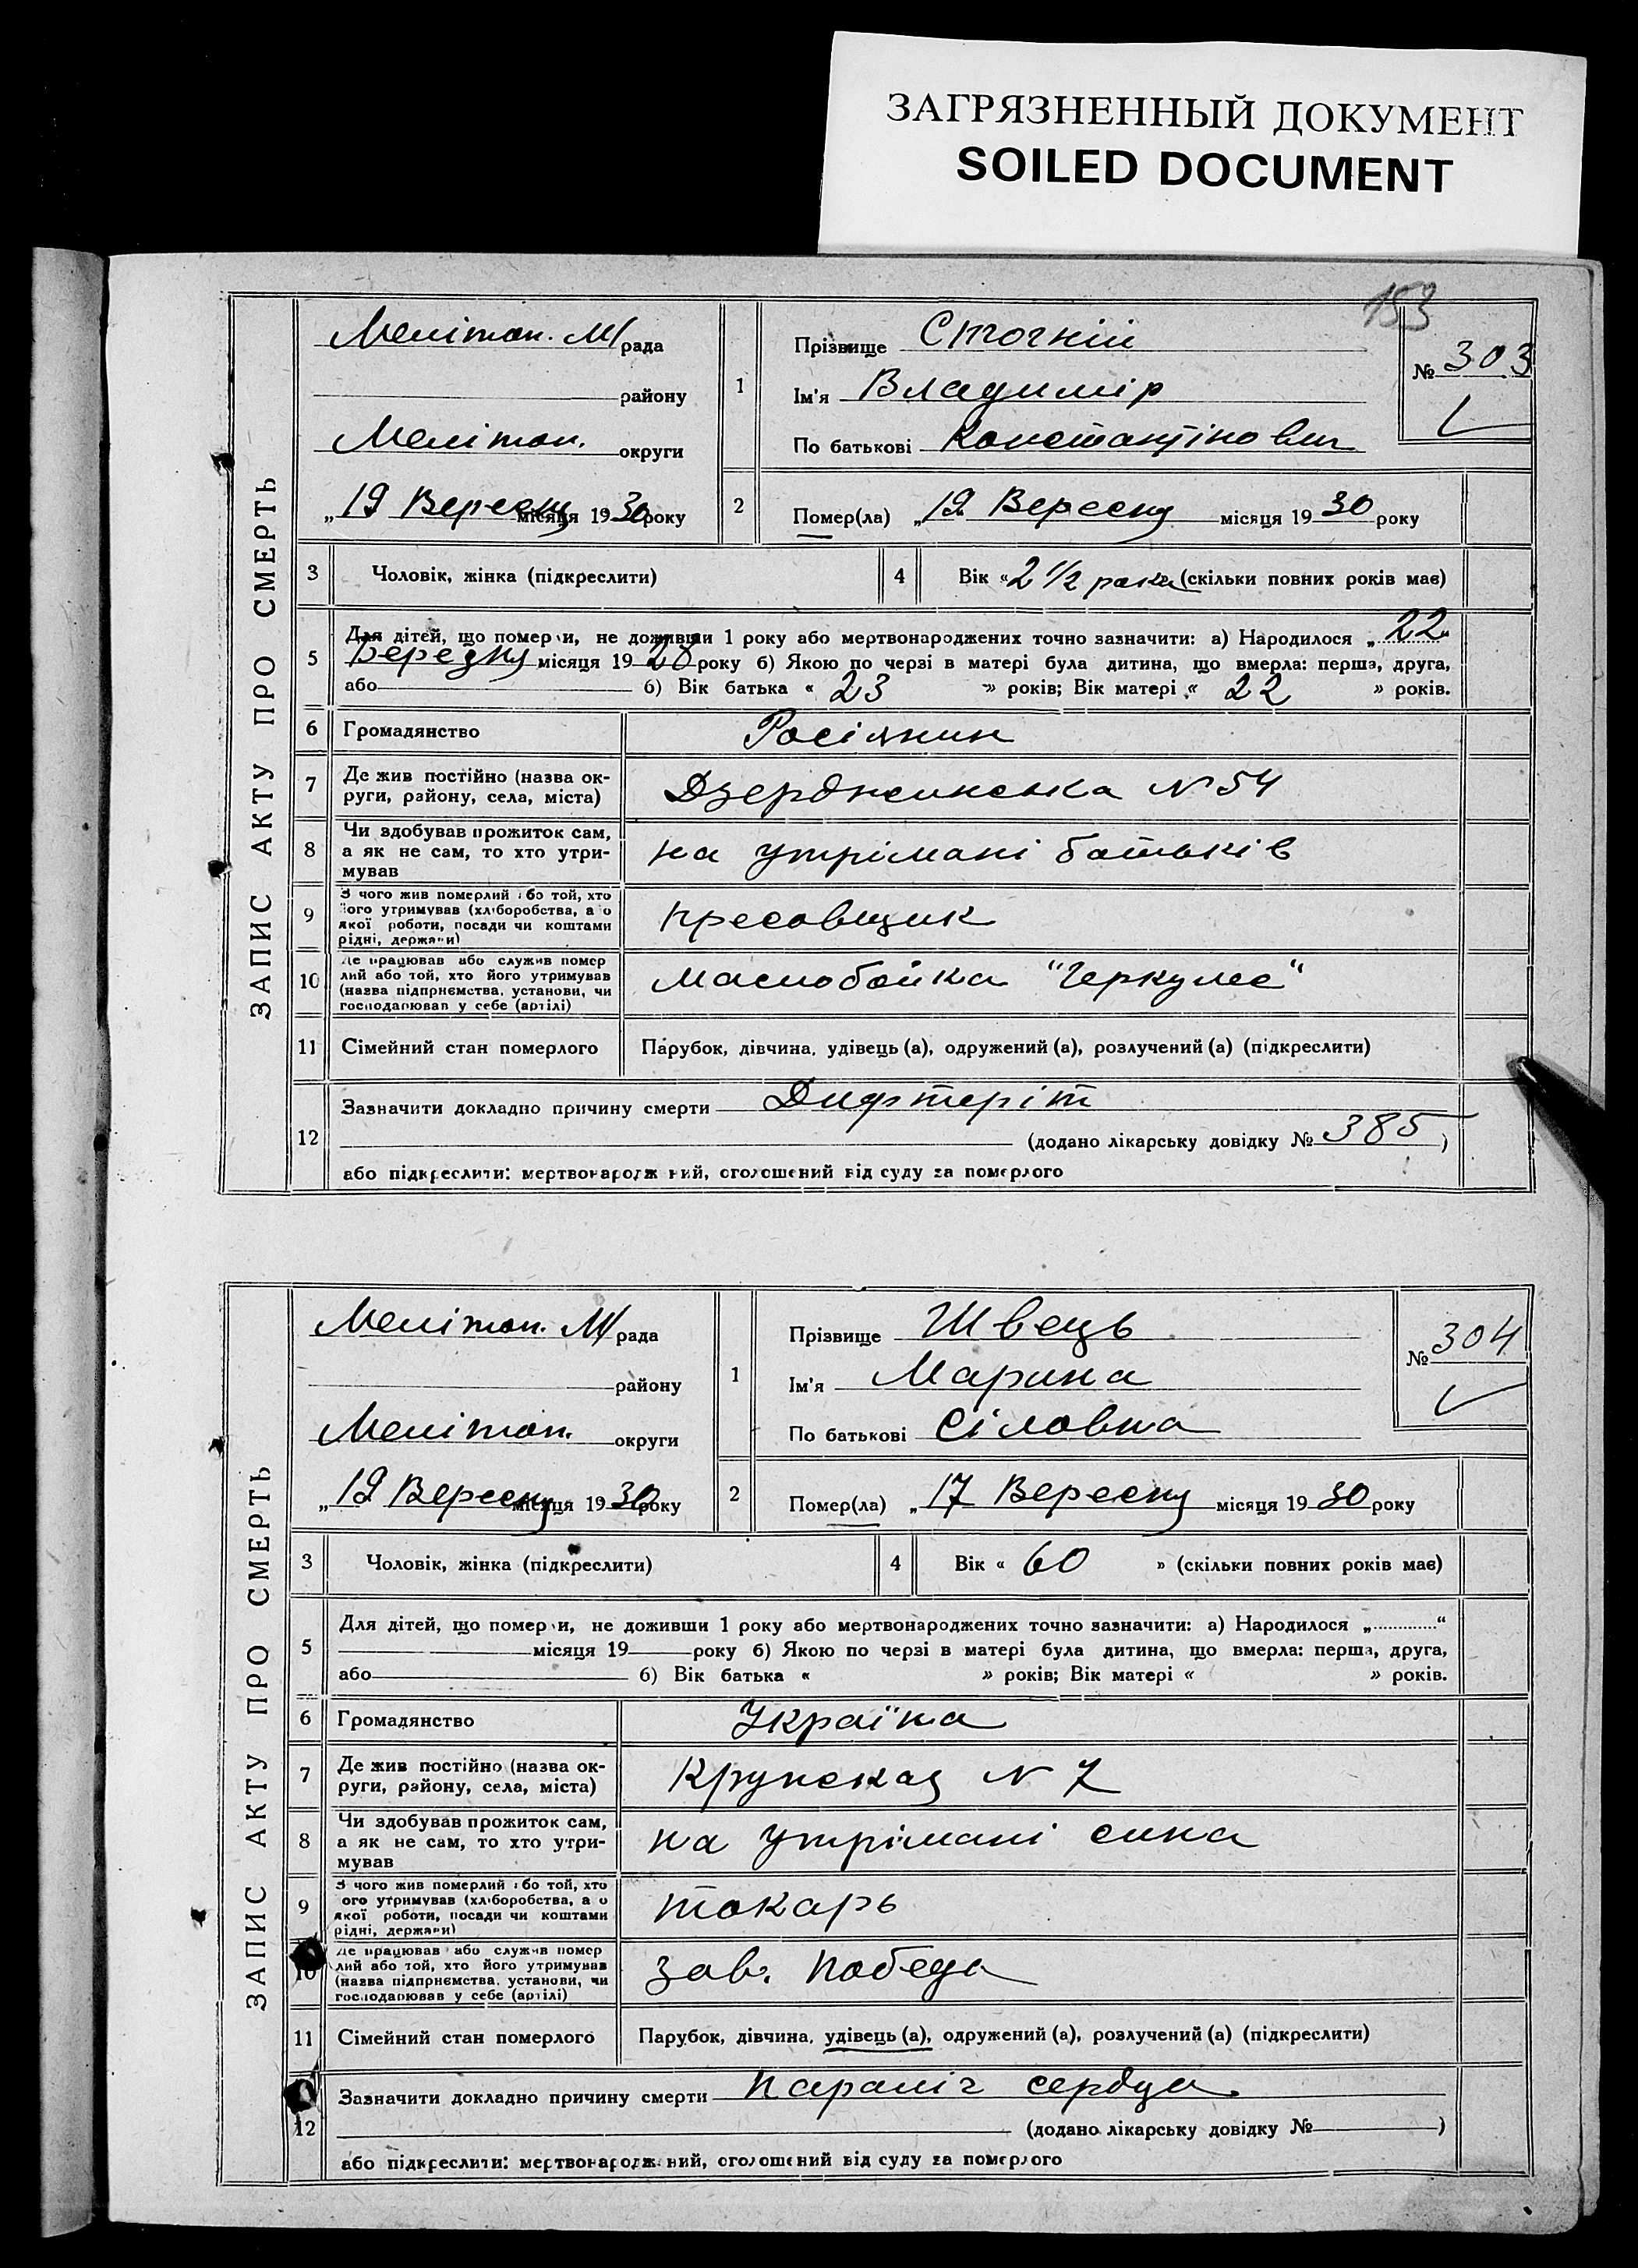 ЗАГРЯЗНЕННЫЙ ДОКУМЕНТ
SOILED DOCUMENT
153
ЗАПИС АКТУ ПРО СМЕРТЬ
Мелітоп. М/рада
району
Мелітоп. округи
„19 Вересня місяця 1930 року
1
Прізвище
Ім'я Владимір
По батькові Константінович
№ 303
2
Помер(ла) „19 Вересня місяця 1930 року
3 Чоловік, жінка (підкреслити)
4 Вік «2 1/2 рока» (скільки повних років має)
5 Для дітей, що померли, не доживши 1 року або мертвонароджених точно зазначити: а) Народилося „22“
Березня місяця 1928 року б) Якою по черзі в матері була дитина, що вмерла: перша, друга,
або б) Вік батька « 23 » років; Вік матері « 22 » років.
6 Громадянство Росіянин
7 Де жив постійно (назва ок-
руги, району, села, міста) Дзердженська N 54
8 Чи здобував прожиток сам,
а як не сам, то хто утри-
мував на утрімані батьків
9 З чого жив померлий або той, хто
його утримував (хліборобства, а о
якої роботи, посади чи коштами
рідні, держави) пресовщик
10 Де працював або служив помер
лий або той, хто його утримував
(назва підприємства, установи, чи
господарював у себе (артілі) Маслобойка "Геркулес"
11 Сімейний стан померлого Парубок, дівчина, удівець (а), одружений (а), розлучений (а) (підкреслити)
12 Зазначити докладно причину смерти Дифтеріт
(додано лікарську довідку № 385)
або підкреслити: мертвонароджений, оголошений від суду за померлого
ЗАПИС АКТУ ПРО СМЕРТЬ
Мелітоп. М/рада
району
Мелітоп. округи
„19 Вересня місяця 1930 року
1
Прізвище Швець
Ім'я Марина
По батькові Сіловна
№ 304
2
Помер(ла) „17 Вересня місяця 1930 року
3 Чоловік, жінка (підкреслити)
4 Вік « 60 » (скільки повних років має)
5 Для дітей, що померли, не доживши 1 року або мертвонароджених точно зазначити: а) Народилося „ “
місяця 19 року б) Якою по черзі в матері була дитина, що вмерла: перша, друга,
або б) Вік батька « » років; Вік матері « » років.
6 Громадянство Україна
7 Де жив постійно (назва ок-
руги, району, села, міста) Крупская N 7
8 Чи здобував прожиток сам,
а як не сам, то хто утри-
мував на утрімані сина
9 З чого жив померлий або той, хто
ого утримував (хліборобства, а о
якої роботи, посади чи коштами
рідні, держави) токарь
10 Де працював або служив помер
лий або той, хто його утримував
(назва підприємства, установи, чи
господарював у себе (артілі) зав. Победа
11 Сімейний стан померлого Парубок, дівчина, удівець (а), одружений (а), розлучений (а) (підкреслити)
12 Зазначити докладно причину смерти Параліч сердца
(додано лікарську довідку № )
або підкреслити: мертвонароджений, оголошений від суду за померлого